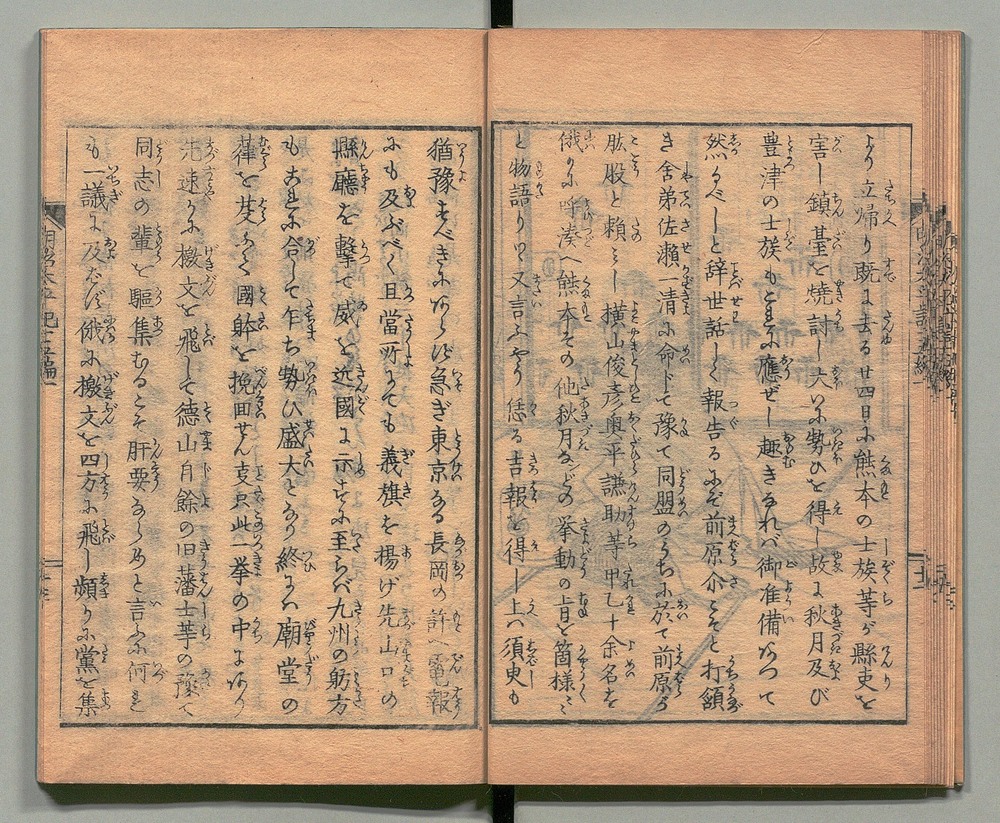 より立帰り既に去る廿四日に熊本の士族等が縣吏を
害し鎮臺を焼討し大いに勢ひを得し故に秋月及び
豊津の士族もこれに應ぜし趣きなれバ御准備あつて
然るべしと辞世話しく報告るにぞ前原ハさこそと打額
き舎弟佐瀬一清に命じて豫て同盟のうちに於て前原が
肱股と頼みし横山俊彦奥平謙助等甲乙十余名を
俄に呼湊へ熊本その他秋月などの挙動の旨を箇様〻〻
と物語りつ又言ふやう恁る吉報を得し上ハ須臾も
猶豫すべきにあらねバ急ぎ東京なる長岡の許へ電報
にも及ぶべく且當所にても義旗を揚げ先山口の
縣廳を撃て威を近國に示すに至らバ九州の舫方
もこれに合して乍ち勢ひ盛大となり終にハ廟堂の
葎を芟るべく國躰を挽回せん支只此一挙の中にあり
先速かに檄文を飛して徳山月餘の旧藩士等の豫て
同志の輩を驅集むるこそ肝要ならめと言ふに何れ
も一議に及ばず俄に檄文を四方に飛し頻りに黨を集